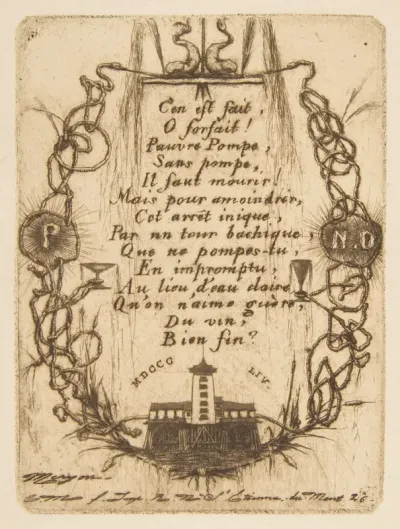 C'en est fait,
O forfait!
Pauvre Pompe,
Sans pompe,
Il faut mourir!
Mais pour amoindrir,
Cet arrêt inique,
Par un tour bachique,
Que ne pompes-tu,
En impromptu,
Au lieu d'eau claire
Qu'on n'aime guère,
Du vin,
Bien fin?
P
N.D
MDCCC LIV.
Meryon
St Etienne du Mont 26